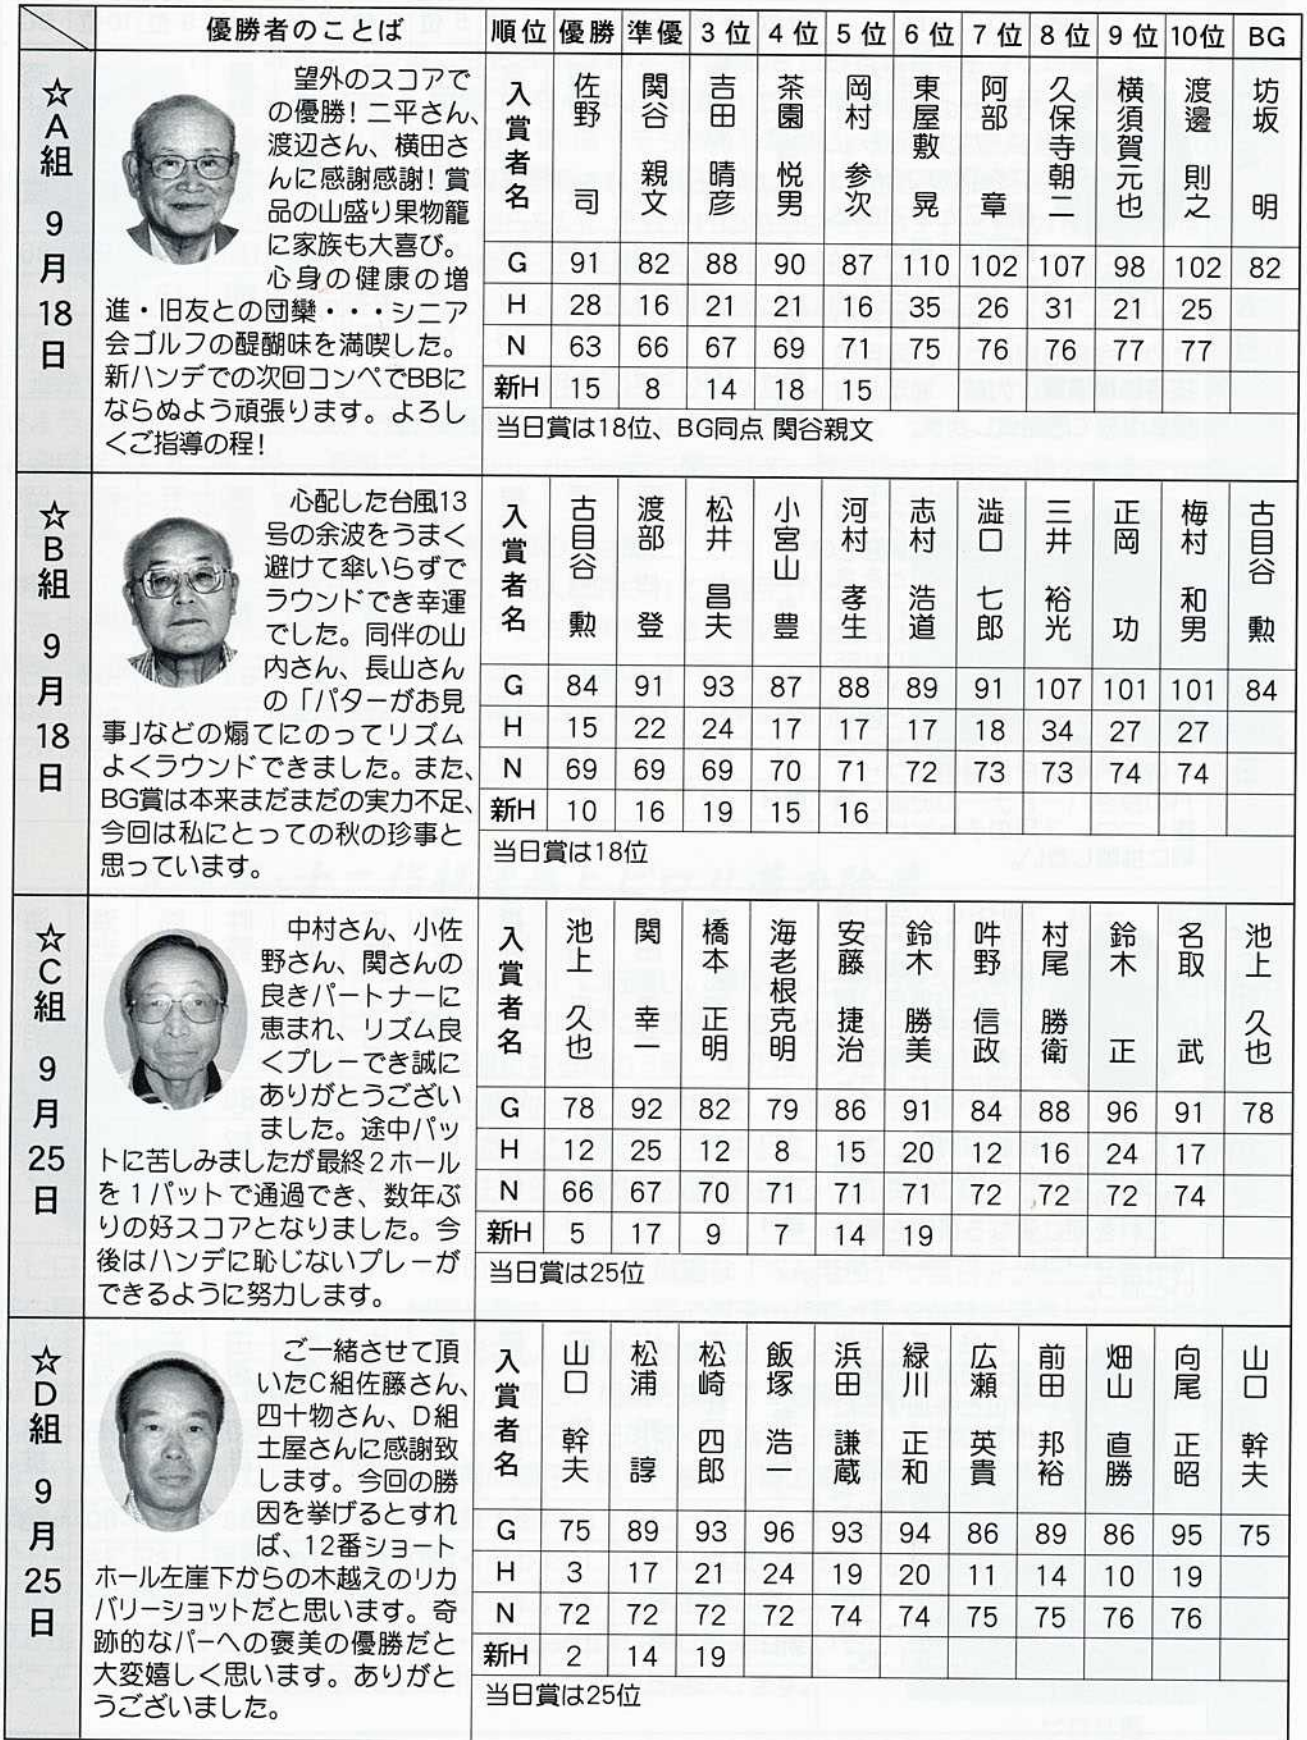 優勝者のことば 順位 優勝 準優 3位 4位 5位 6位 7位 8位 9位 10位 BG
☆A組 9月18日
望外のスコアで
の優勝！二平さん、
渡辺さん、横田さ
んに感謝感謝！賞
品の山盛り果物籠
に家族も大喜び。
心身の健康の増
進・旧友との団欒・・・シニア
会ゴルフの醍醐味を満喫した。
新ハンデでの次回コンペでBBに
ならぬよう頑張ります。よろし
くご指導の程！
入賞者名 佐野 司 関谷 親文 吉田 晴彦 茶園 悦男 岡村 参次 東屋敷 晃 阿部 章 久保寺朝二 横須賀元也 渡邊 則之 坊坂 明
G 91 82 88 90 87 110 102 107 98 102 82
H 28 16 21 21 16 35 26 31 21 25
N 63 66 67 69 71 75 76 76 77 77
新H 15 8 14 18 15
当日賞は18位、BG同点 関谷親文
☆B組 9月18日
心配した台風13
号の余波をうまく
避けて傘いらずで
ラウンドでき幸運
でした。同伴の山
内さん、長山さん
の「パターがお見
事」などの煽てにのってリズム
よくラウンドできました。また、
BG賞は本来まだまだの実力不足、
今回は私にとっての秋の珍事と
思っています。
入賞者名 古目谷 勲 渡部 登 松井 昌夫 小宮山 豊 河村 孝生 志村 浩道 澁口 七郎 三井 裕光 正岡 功 梅村 和男 古目谷 勲
G 84 91 93 87 88 89 91 107 101 101 84
H 15 22 24 17 17 17 18 34 27 27
N 69 69 69 70 71 72 73 73 74 74
新H 10 16 19 15 16
当日賞は18位
☆C組 9月25日
中村さん、小佐
野さん、関さんの
良きパートナーに
恵まれ、リズム良
くプレーでき誠に
ありがとうござい
ました。途中パッ
トに苦しみましたが最終2ホール
を1パットで通過でき、数年ぶ
りの好スコアとなりました。今
後はハンデに恥じないプレーが
できるように努力します。
入賞者名 池上 久也 関 幸一 橋本 正明 海老根克明 安藤 捷治 鈴木 勝美 吽野 信政 村尾 勝衛 鈴木 正 名取 武 池上 久也
G 78 92 82 79 86 91 84 88 96 91 78
H 12 25 12 8 15 20 12 16 24 17
N 66 67 70 71 71 71 72 72 72 74
新H 5 17 9 7 14 19
当日賞は25位
☆D組 9月25日
ご一緒させて頂
いたC組佐藤さん、
四十物さん、D組
土屋さんに感謝致
します。今回の勝
因を挙げるとすれ
ば、12番ショート
ホール左崖下からの木越えのリカ
バリーショットだと思います。奇
跡的なパーへの褒美の優勝だと
大変嬉しく思います。ありがと
うございました。
入賞者名 山口 幹夫 松浦 諄 松崎 四郎 飯塚 浩一 浜田 謙蔵 緑川 正和 広瀬 英貴 前田 邦裕 畑山 直勝 向尾 正昭 山口 幹夫
G 75 89 93 96 93 94 86 89 86 95 75
H 3 17 21 24 19 20 11 14 10 19
N 72 72 72 72 74 74 75 75 76 76
新H 2 14 19
当日賞は25位